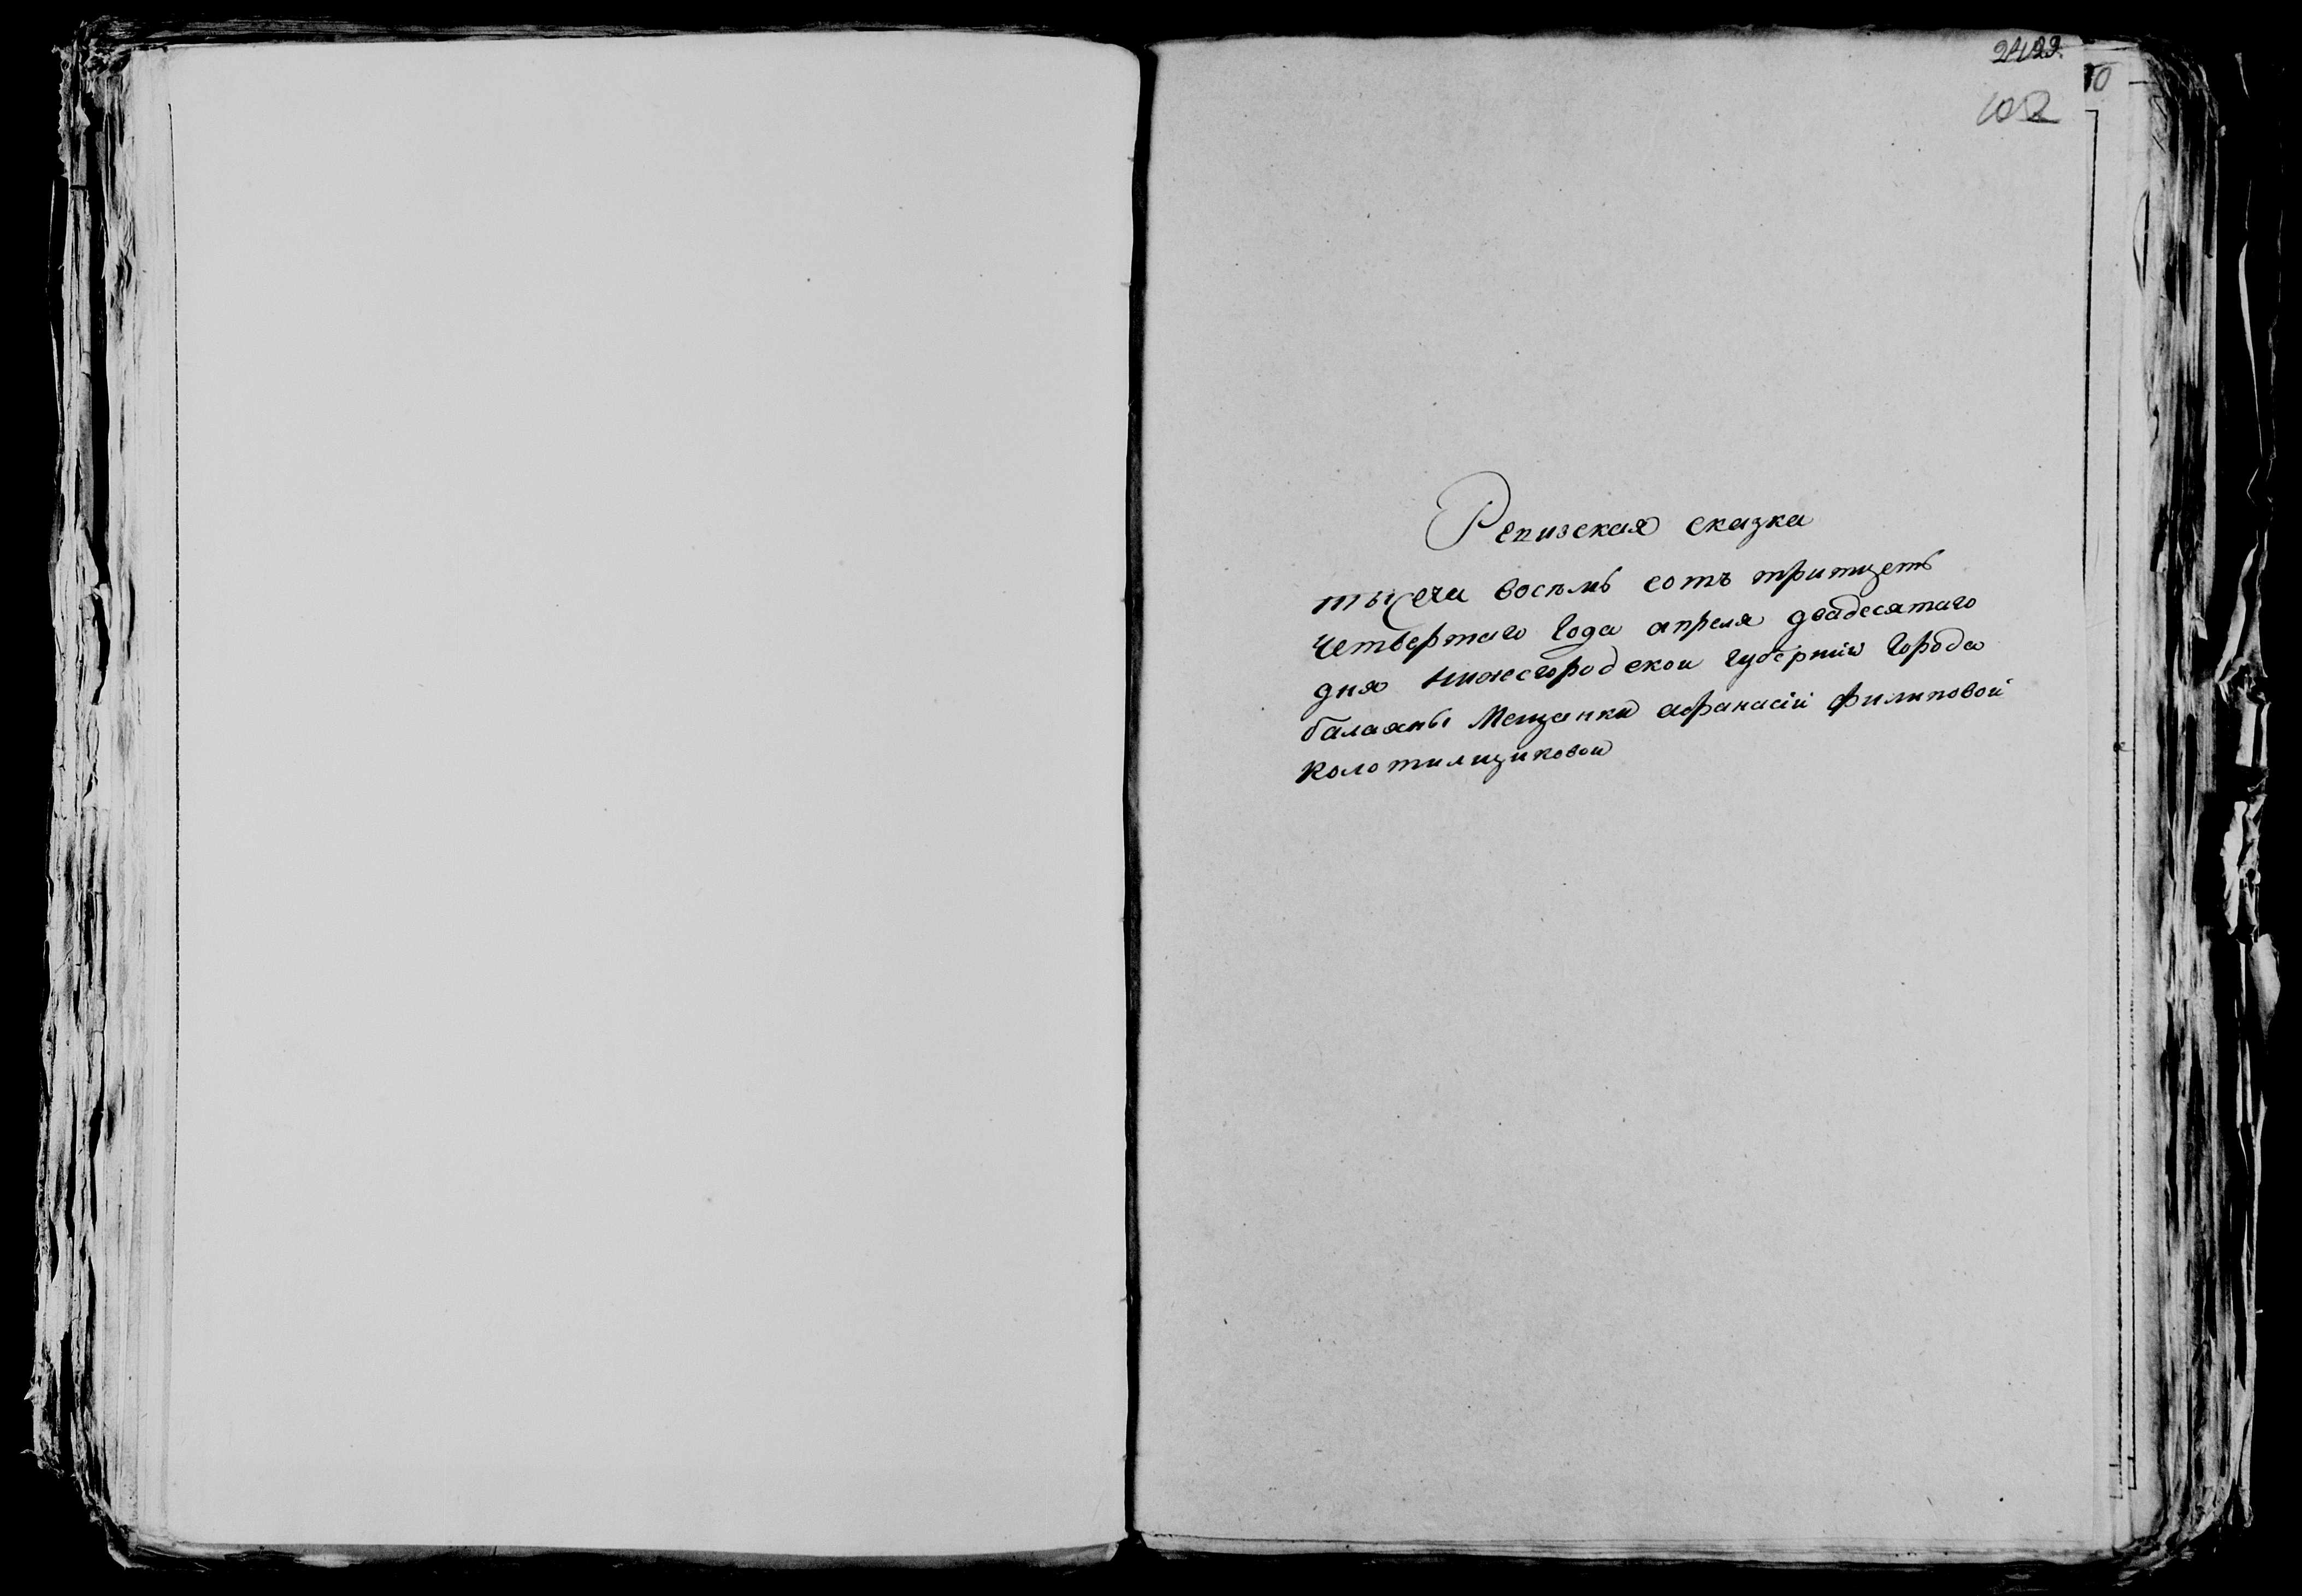 102
Репизская сказка
тысеча восемь сотъ тритцеть
четвертаго Года апреля двадесятаго
дня нижегородской губерний Города
балахны Мещанки афанасiй филиповой
колотилщиковой